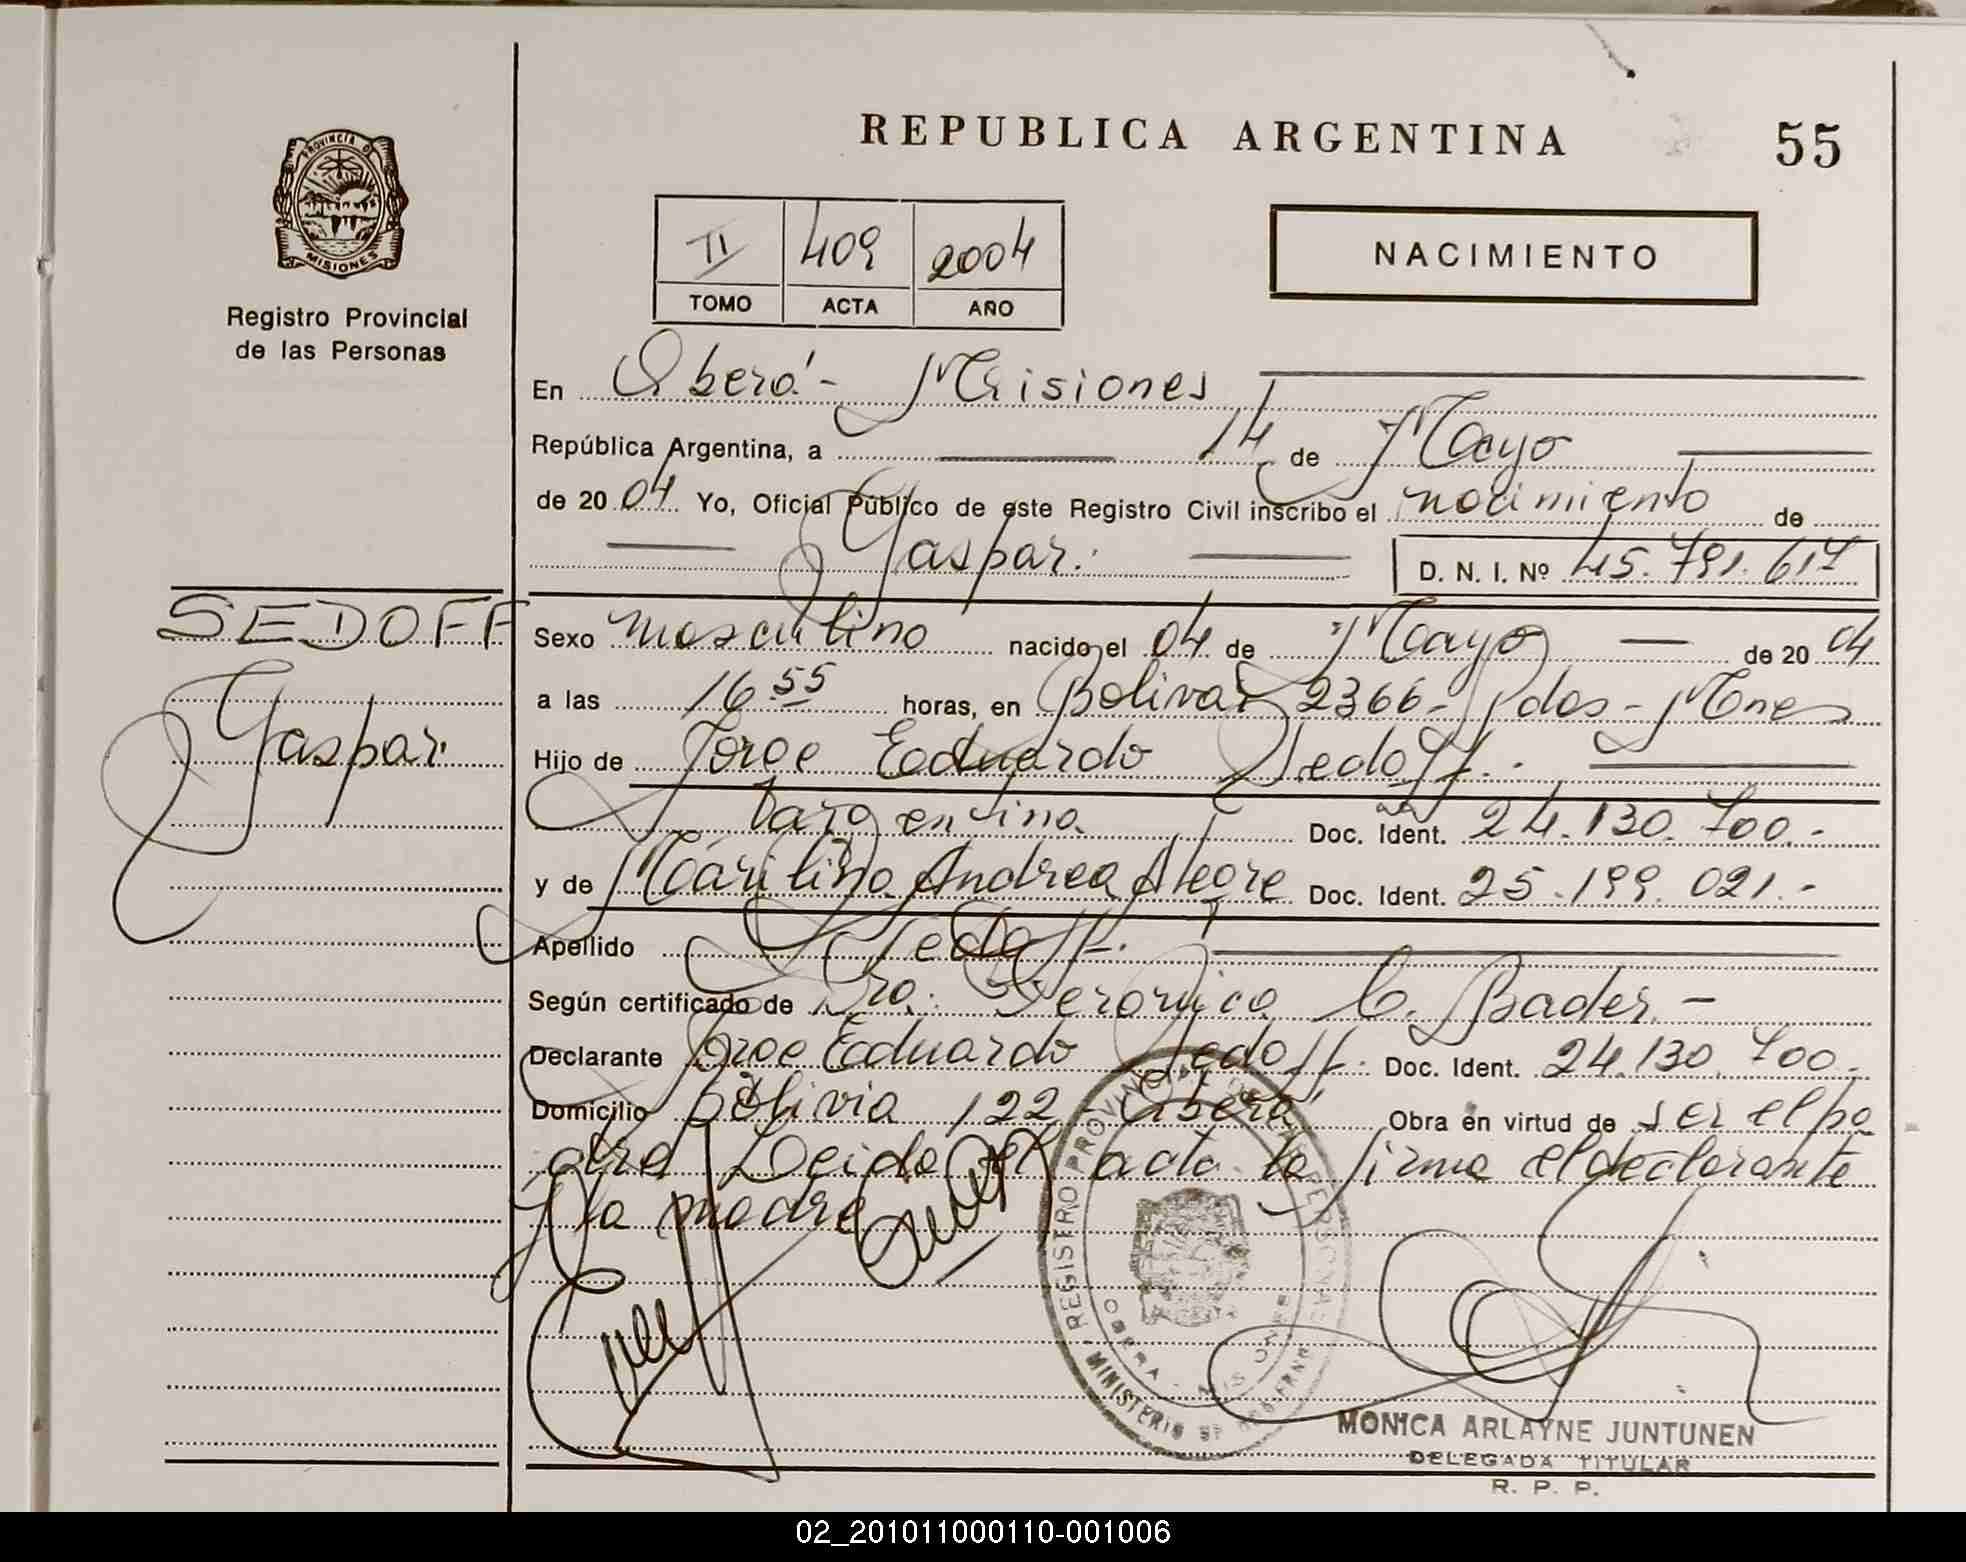 REPUBLICA ARGENTINA
55
PROVINCIA DE
MISIONES
Registro Provincial
de las Personas
II 409 2004
TOMO ACTA AÑO
NACIMIENTO
En Oberá - Misiones
República Argentina, a 14 de Mayo
de 2004 Yo, Oficial Público de este Registro Civil inscribo el nacimiento de
Gaspar.
D. N. I. Nº 45.791.617
SEDOFF
Gaspar.
Sexo masculino nacido el 04 de Mayo de 2004
a las 16 55 horas, en Bolivar 2366 - Pdas - Mnes
Hijo de Jorge Eduardo Sedoff.
argentina Doc. Ident. 24.130.700.-
y de Marilina Andrea Alegre Doc. Ident. 25.199.021.-
Apellido Sedoff.
Según certificado de Dra. Veronica C. Bader. -
Declarante Jorge Eduardo Sedoff. Doc. Ident. 24.130.700.-
Domicilio Bolivia 122 - Oberá Obra en virtud de ser el pa
dre Leida el acta la firma el declarante
y la madre
REGISTRO PROVINCIAL DE LAS PERSONAS
OBERA - MISIONES
MINISTERIO DE GOBIERNO
MONICA ARLAYNE JUNTUNEN
DELEGADA TITULAR
R. P. P.
02_201011000110-001006